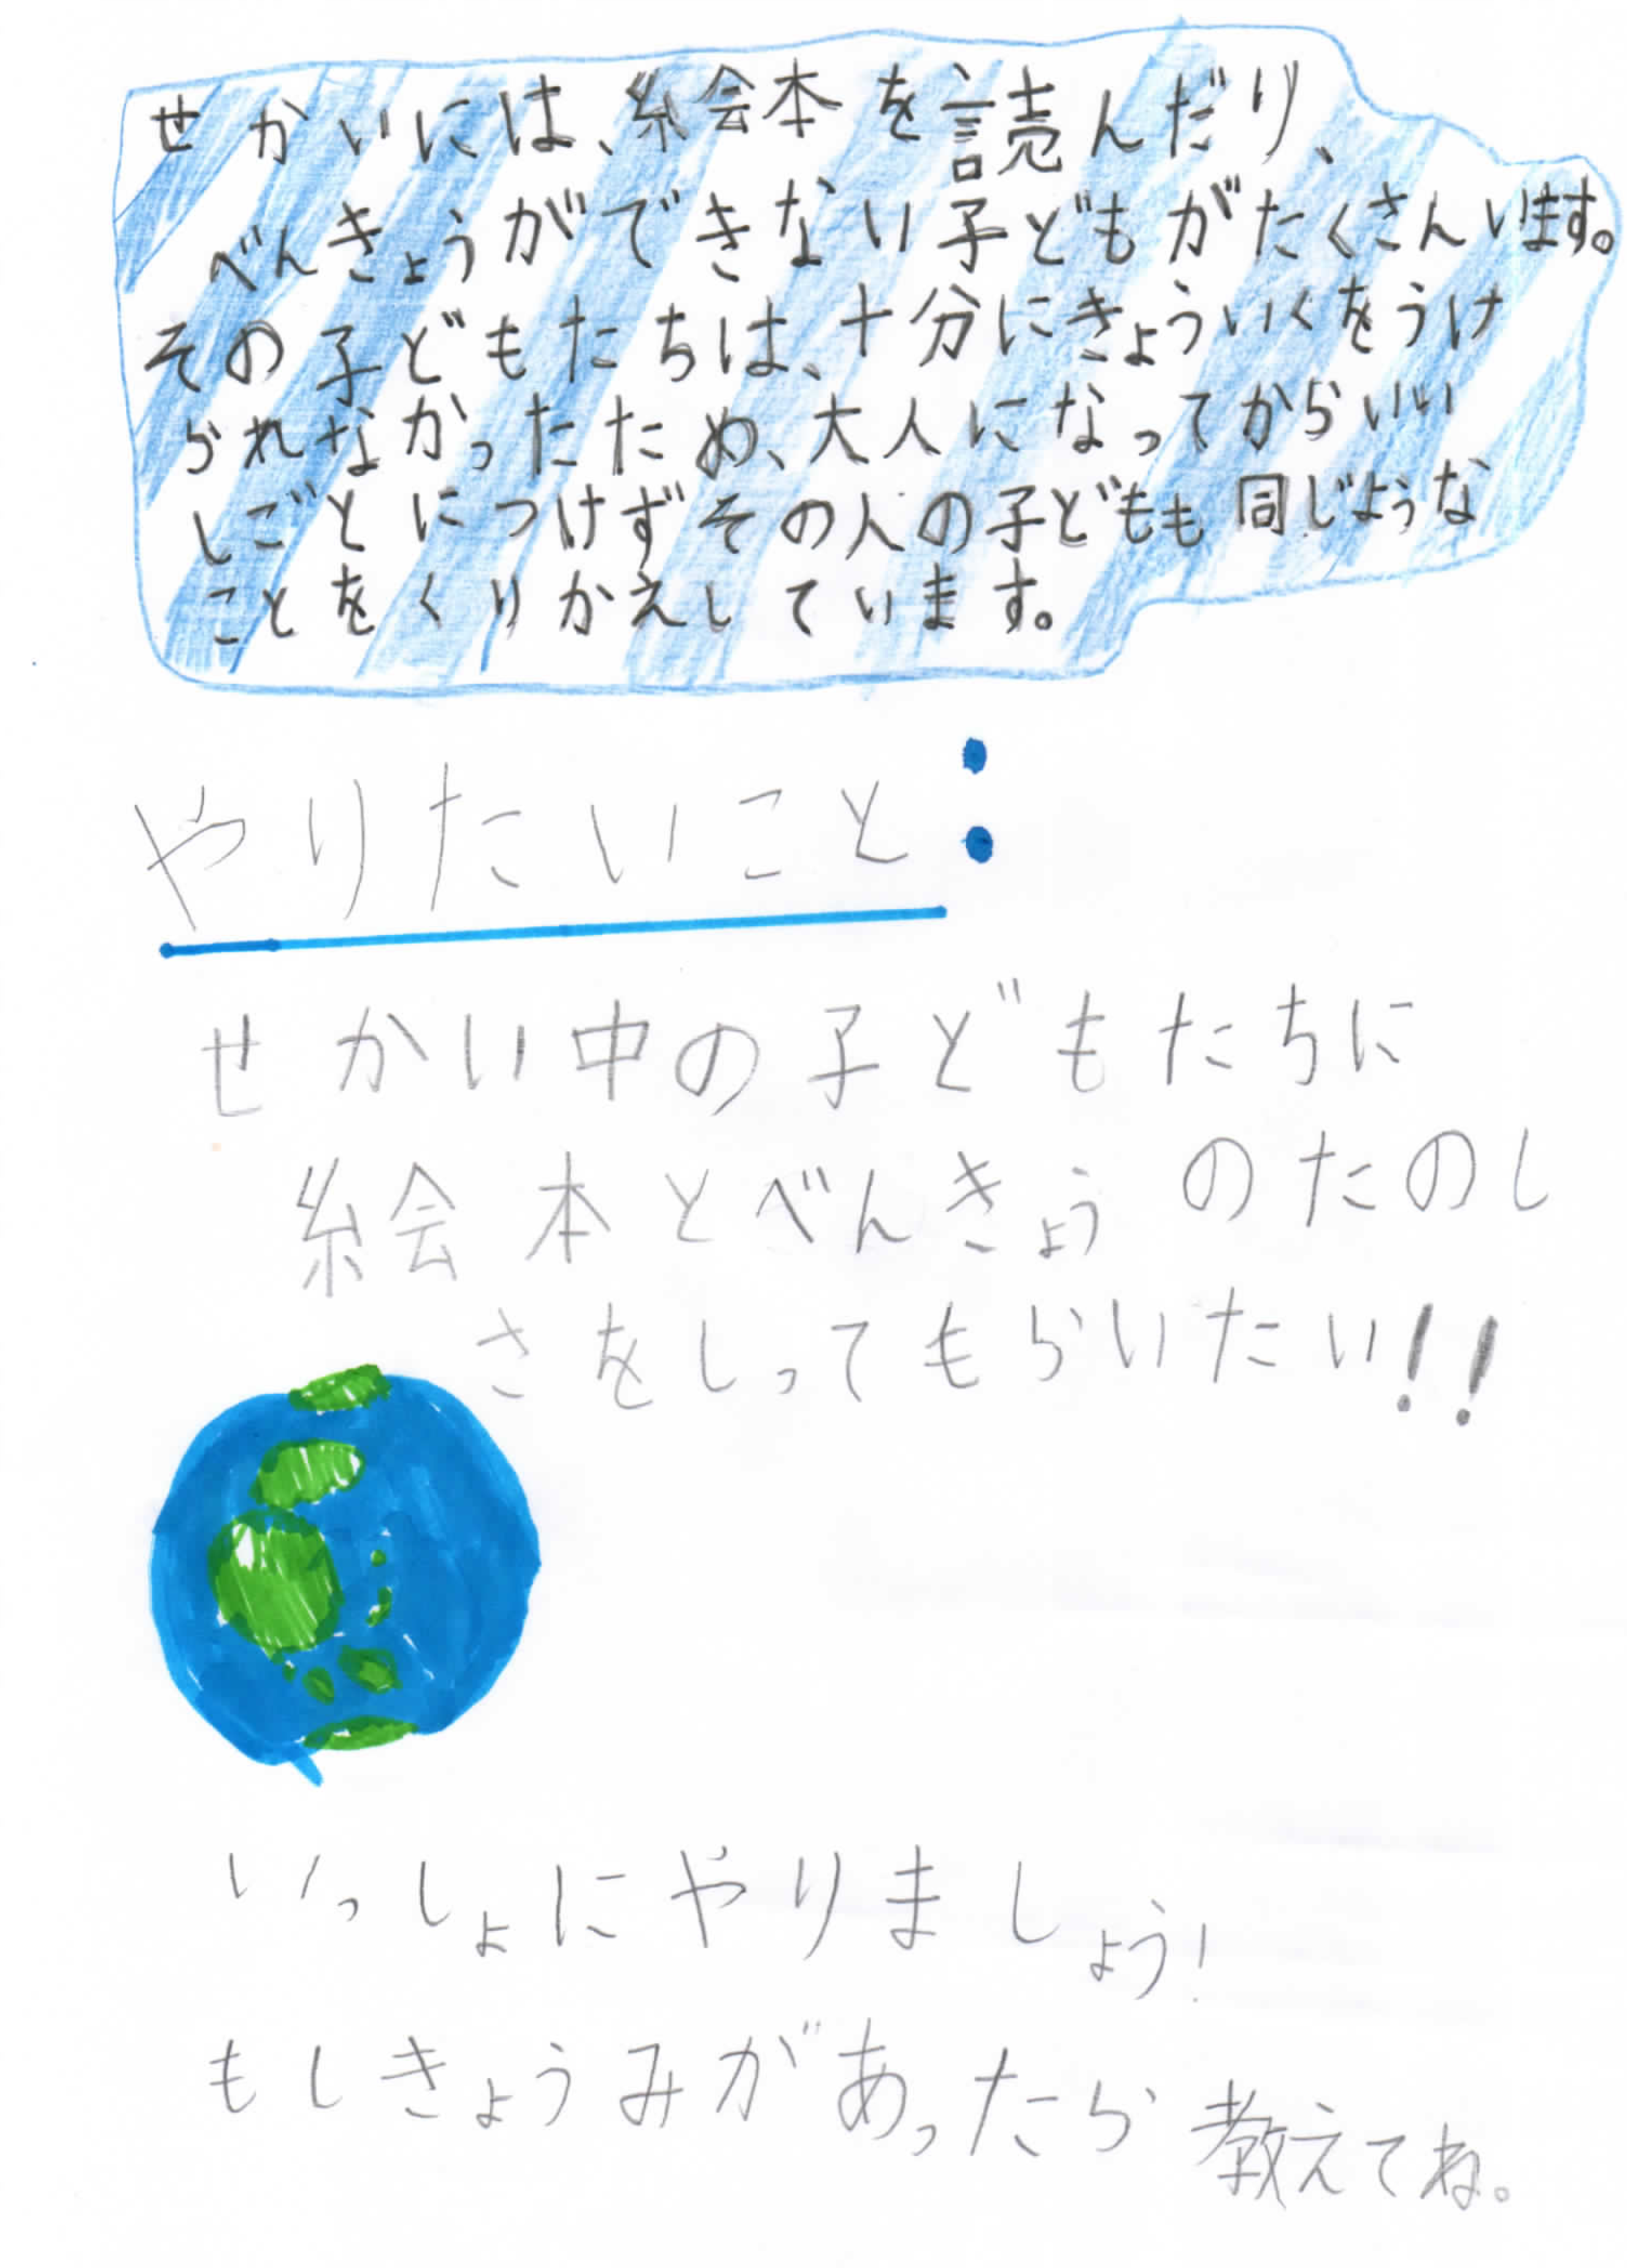 せかいには、絵本を読んだり、
べんきょうができない子どもがたくさんいます。
その子どもたちは、十分にきょういくをうけ
られなかったため、大人になってからいい
しごとにつけずその人の子どもも同じような
ことをくりかえしています。
やりたいこと:
せかい中の子どもたちに
絵本とべんきょうのたのし
さをしってもらいたい!!
いっしょにやりましょう!
もしきょうみがあったら教えてね。